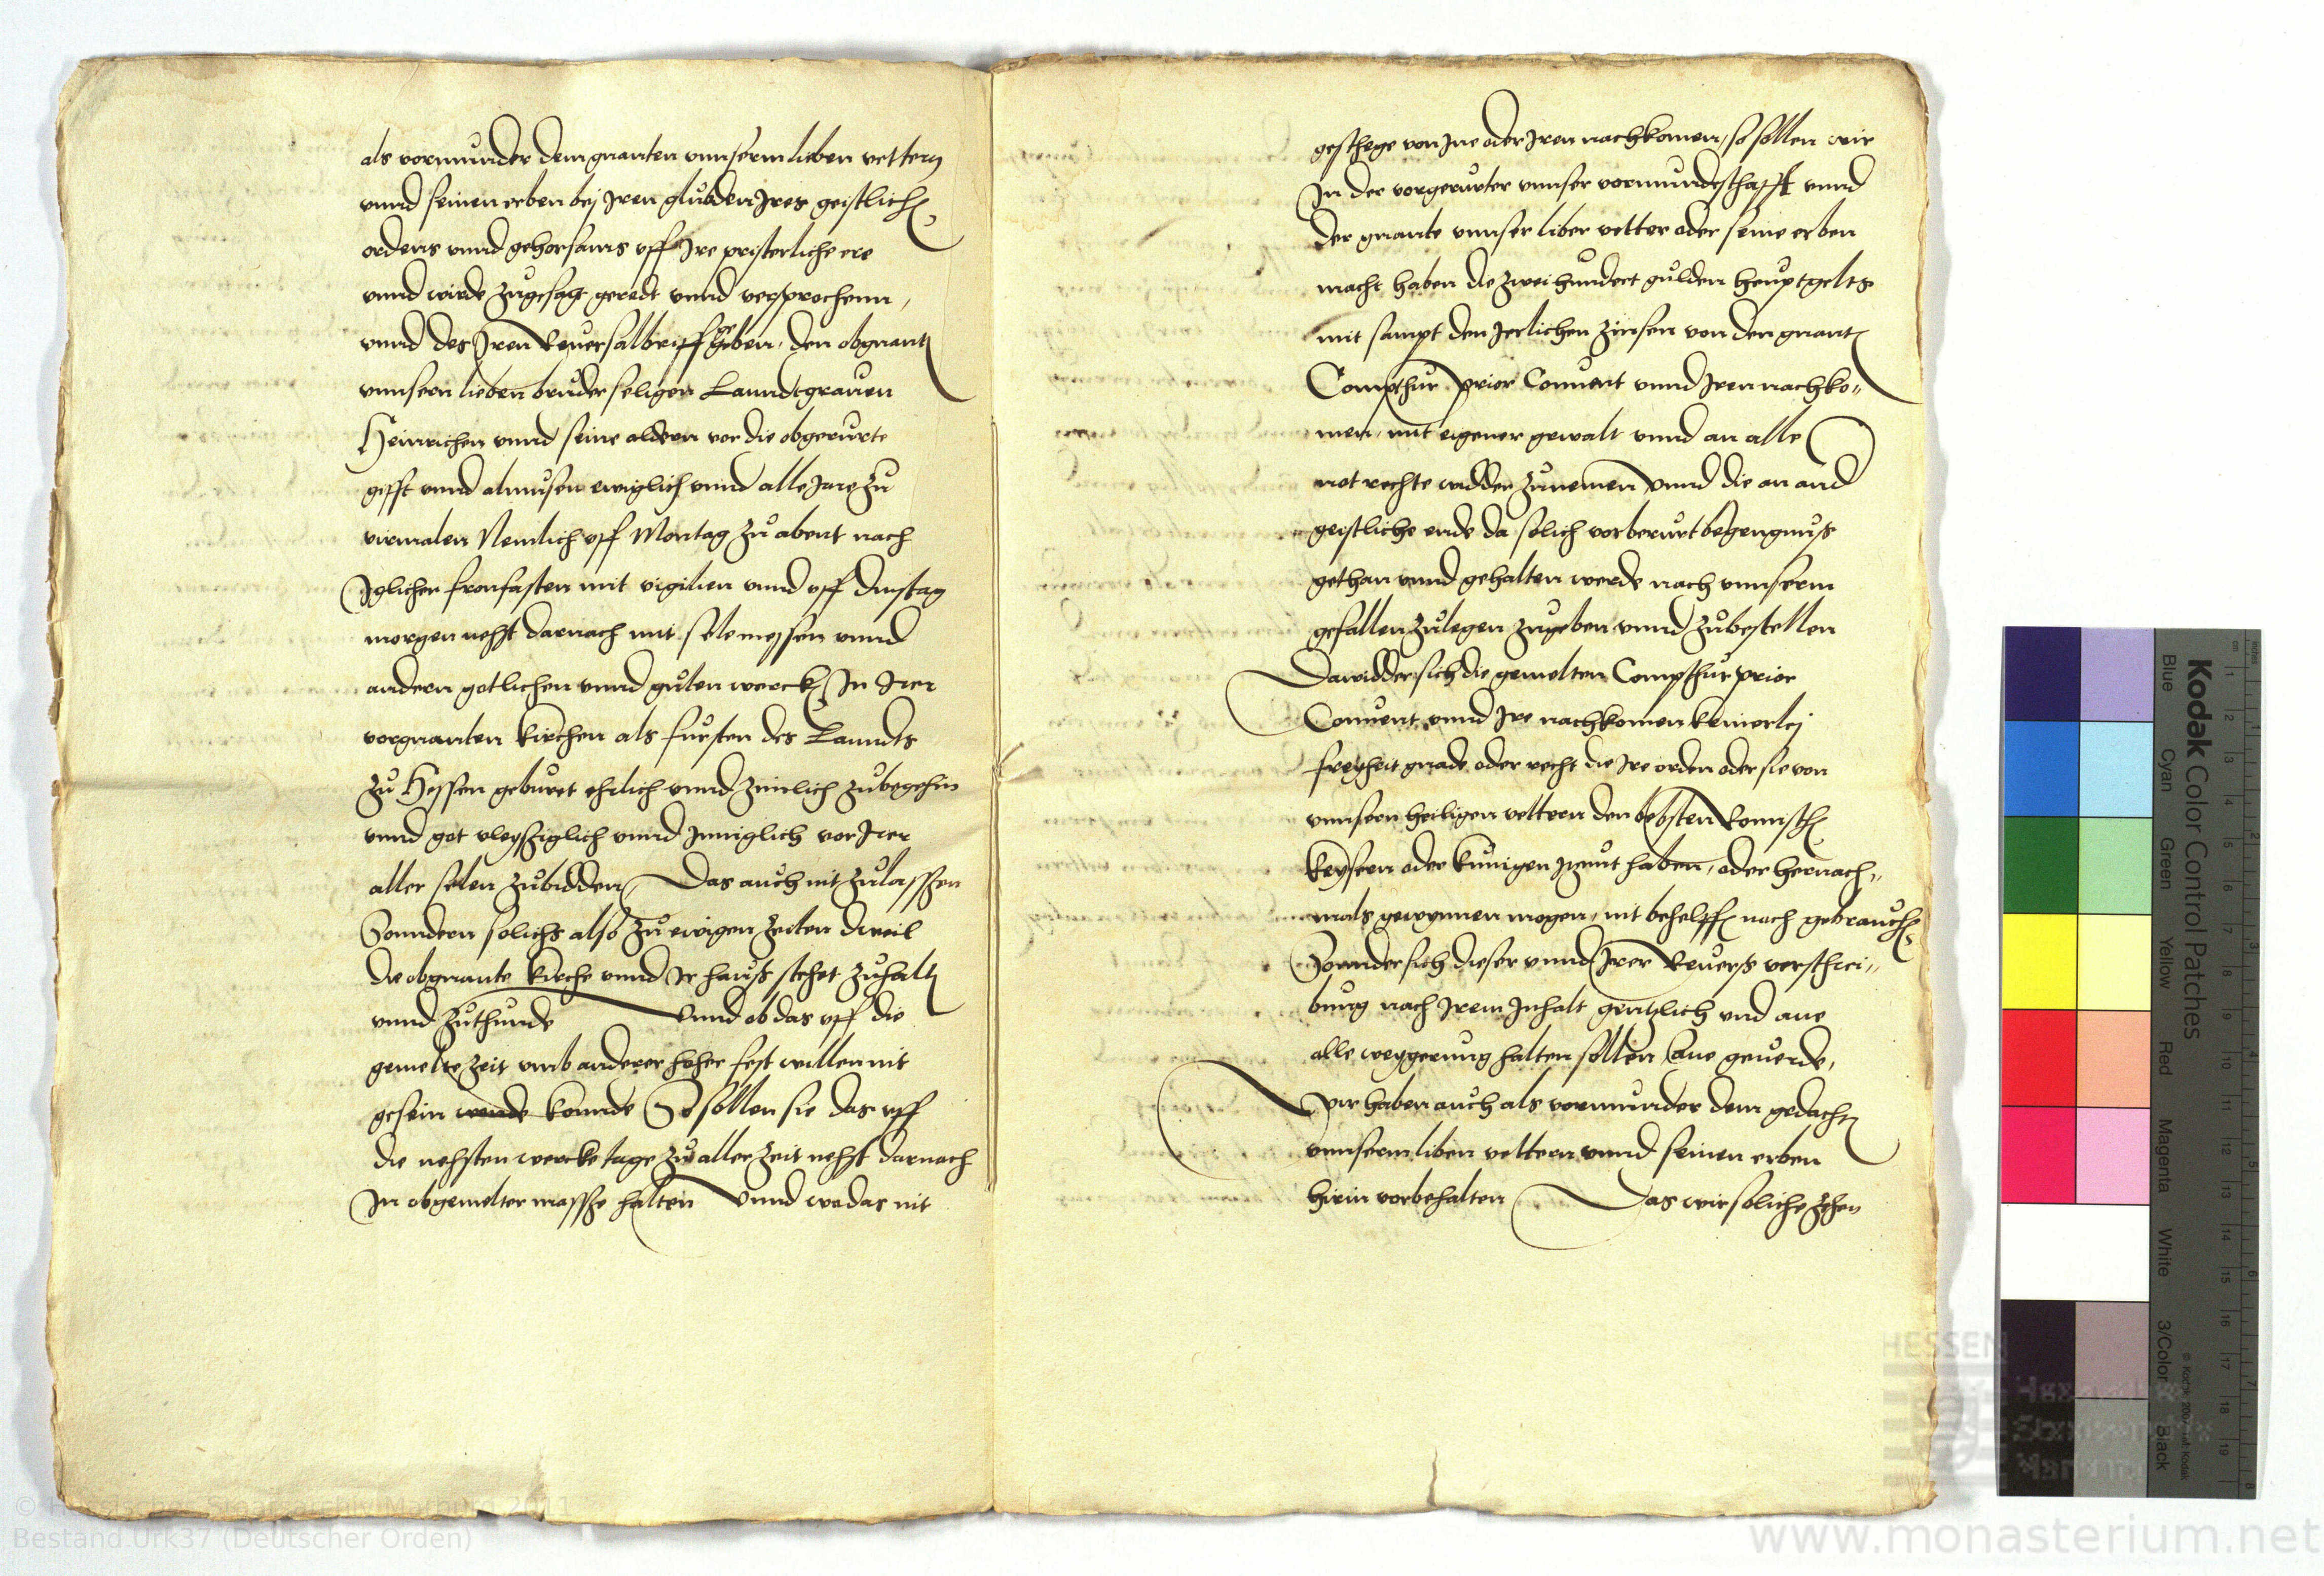 als vormunder dem gnanten vnnserm lieben vettern
vnnd seinen erben bej Jren glubden Jres geistlich
ordens vnnd gehorsams vff Jre pristerliche ere
vnnd wirde zugesagt geredt vnnd versprochenn,
vnnd des Jren Reuersalbriff geben, den obgnant
vnnsern lieben bruder seligen Lanndtgrauen
Heinrichen vnnd seine aldern vor die obgerurte
gifft vnnd almusen ewiglich vnnd alle Jare zu
virmalen Nemlich vff Montag zu abent nach
Jglicher fronfasten mit vigilien vnnd vff dinstag
morgen nehst darnach mit selemessen vnnd
andern gotlichen vnnd guten werck In Irer
vorgnanten kirchen als fursten des Lanndts
zu Hessen geburet ehrlich vnnd zimlich zubegehin
vnnd got vleysziglich vnnd Jnniglich vor Irer
aller selen zubidden, Das auch nit zulasszen
Sonndern solichs also zu ewigen zeiten dweil
die obgnante kirche vnnd Ir hauss stehet zuhalt
vnnd zuthunde Vnnd ob das vff die
gemelte zeit vmb anderer hoher fest willen nit
gesein wende konnde So sollen sie das vff
die nehsten wercketage zu aller zeit nehst darnach
In obgemelter massze halten Vnnd wo das nit
geschege von Jne oder Jren nachkomen, so sollen wir
In der vorgerurter vnnser vormundschafft vnnd
der gnante vnnser liber vetter oder seine erben
macht haben die zweihundert gulden heuptgelts
mit sampt den Jerlichen zinsen von den gnant
Compthur prior Conuent vnnd Jren nachko„
men, mit eigener gewalt vnnd an alle
not rechte widder zunemen Vnnd die an and
geistliche ende da solich vorberurt begengnus
gethan vnnd gehalten werde nach vnnserm
gefallen zulegen zugeben vnnd zubestellen
Dawidder sich die gemelten Compthur prior
Conuent vnnd Jre nachkomen keinerlej
freyheit gnade oder recht die Jre orden oder sie von
vnnsern heiligen vettern den bebsten Romisch
keysern oder kunigen Jtzunt haben, oder hernach„
mals gewynnen mogen, nit behelffen nach gebrauch
Sonnder sich dieser vnnd Jrer Reuerss verschrei„
bung nach Jrem Jnhalt gentzlich vnd ane
alle weygerung halten sollen ane geuerde,
Wir haben auch als vormunder dem gedacht
vnnserm liben vettern vnnd seinen erben
hirin vorbehalten Das wir soliche zehen
Kodak Color Control Patches
Blue Cyan Green Yellow Red Magenta White 3/Color Black
HESSEN
© Hessisches Staatsarchiv Marburg 2011
Bestand Urk37 (Deutscher Orden)
www.monasterium.net